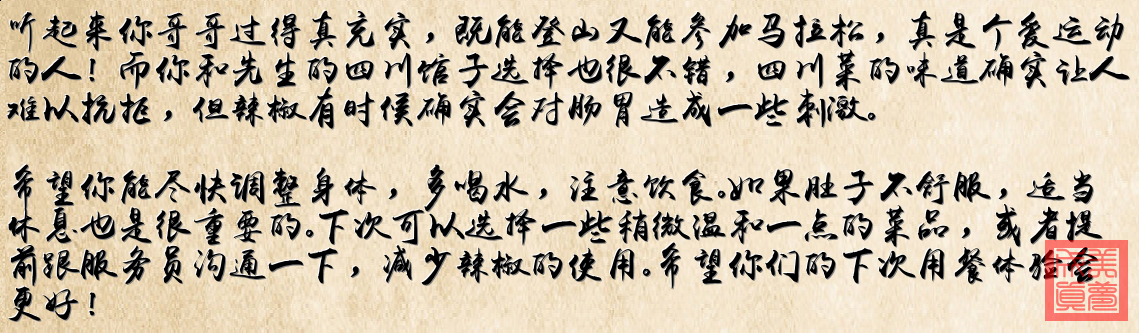 听起来你哥哥过得真充实，既能登山又能参加马拉松，真是个爱运动
的人！而你和先生的四川馆子选择也很不错，四川菜的味道确实让人
难以抗拒，但辣椒有时候确实会对肠胃造成一些刺激。
希望你能尽快调整身体，多喝水，注意饮食。如果肚子不舒服，适当
休息也是很重要的。下次可以选择一些稍微温和一点的菜品，或者提
前跟服务员沟通一下，减少辣椒的使用。希望你们的下次用餐体验会
更好！